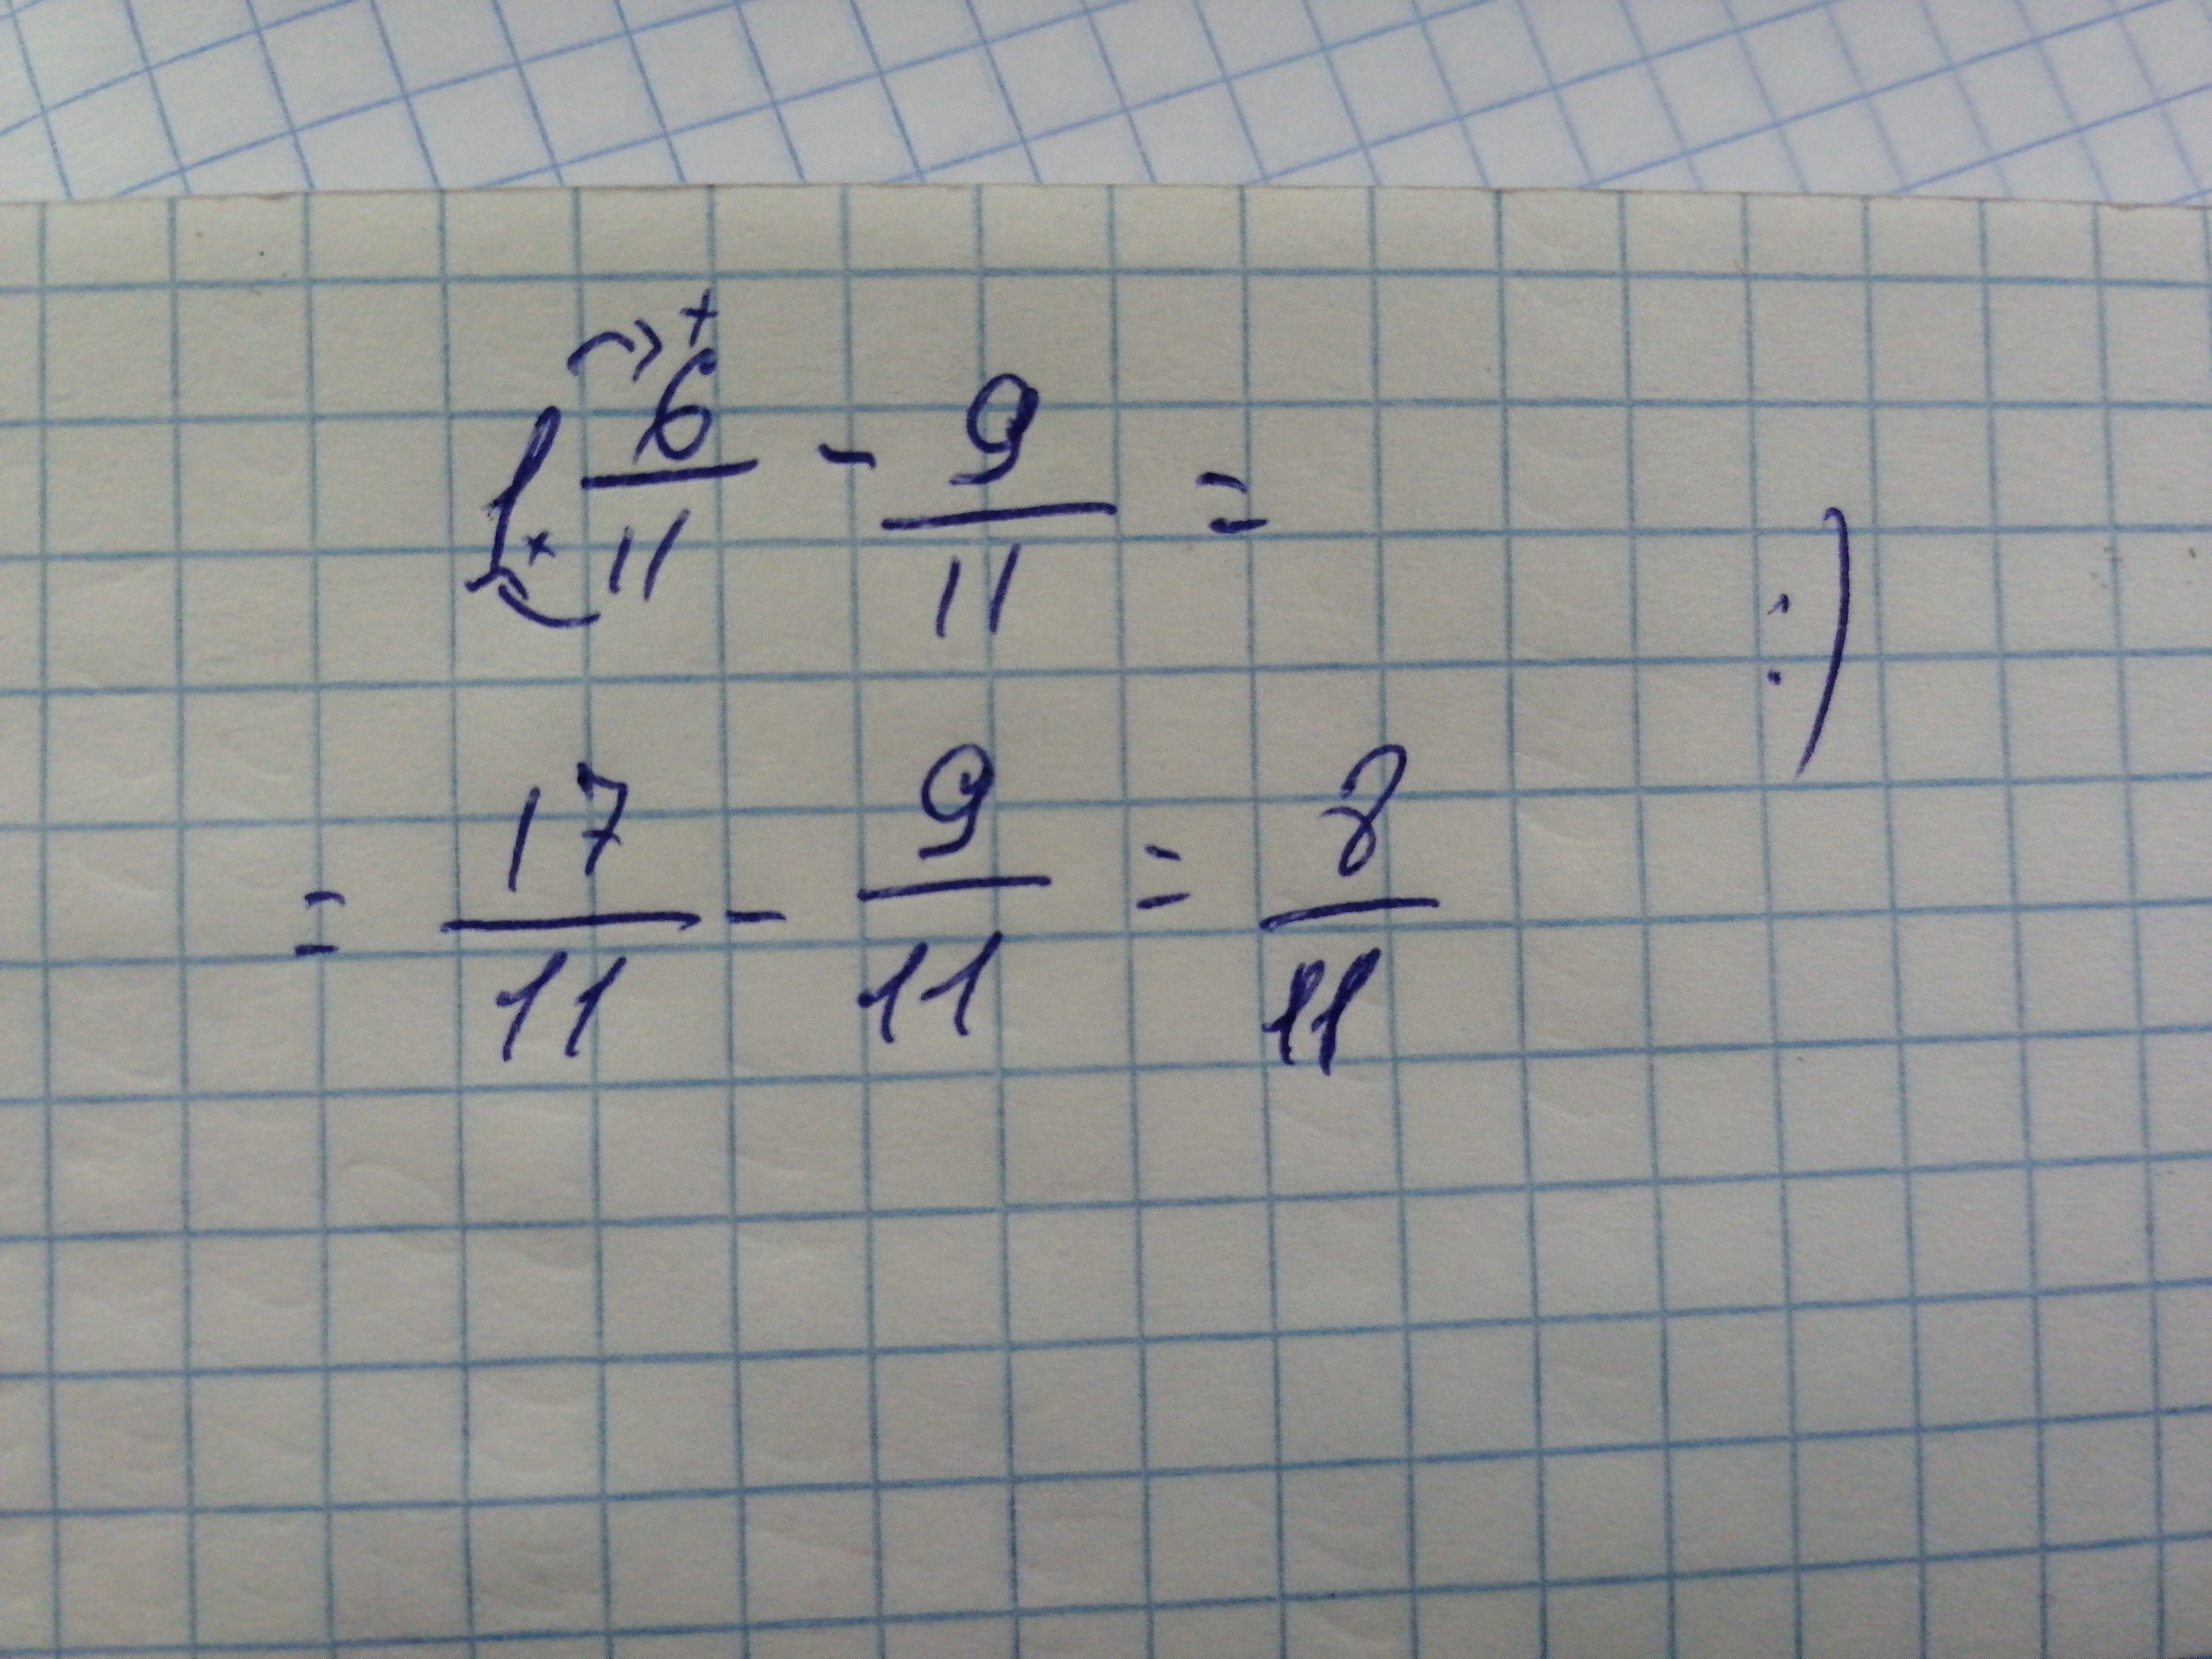 1 6/11 - 9/11 =
:)
= 17/11 - 9/11 = 8/11